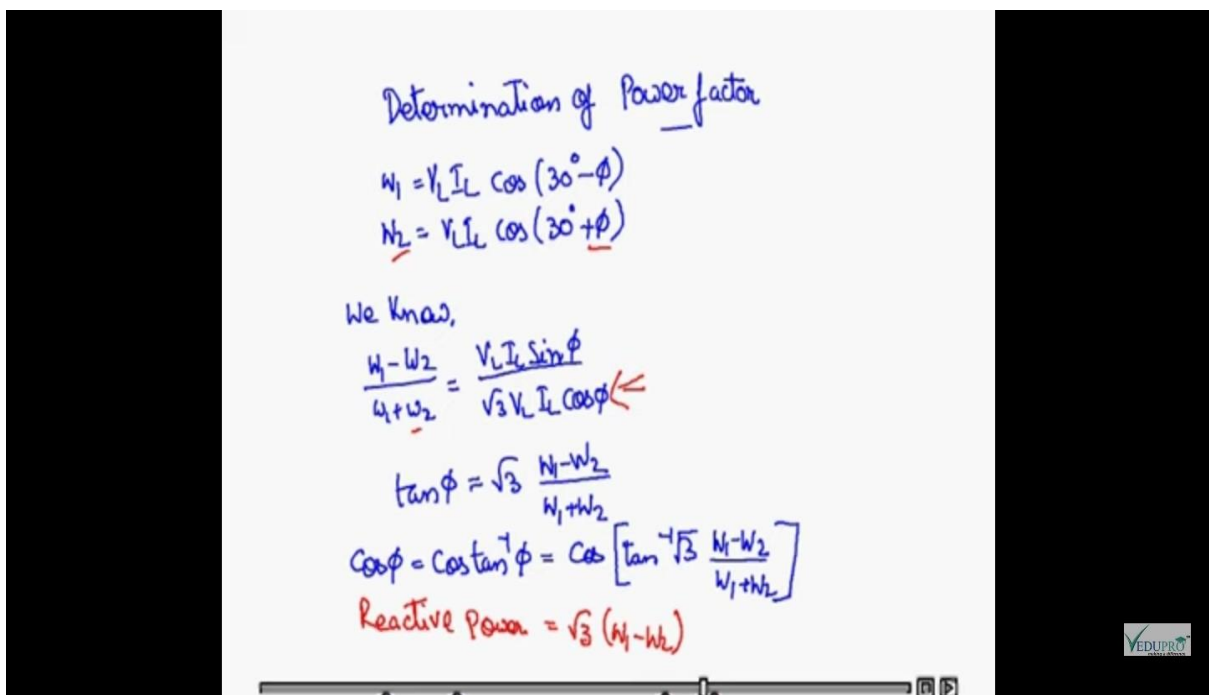 Determination of Power factor
W₁ = V_L I_L Cos (30° - ϕ)
W₂ = V_L I_L Cos (30° + ϕ)
We Know,
W₁ - W₂ / W₁ + W₂ = V_L I_L Sin ϕ / √3 V_L I_L Cos ϕ
tan ϕ = √3 W₁ - W₂ / W₁ + W₂
Cos ϕ = Cos tan⁻¹ ϕ = Cos [tan⁻¹ √3 W₁ - W₂ / W₁ + W₂]
Reactive Power = √3 (W₁ - W₂)
VEDUPRO